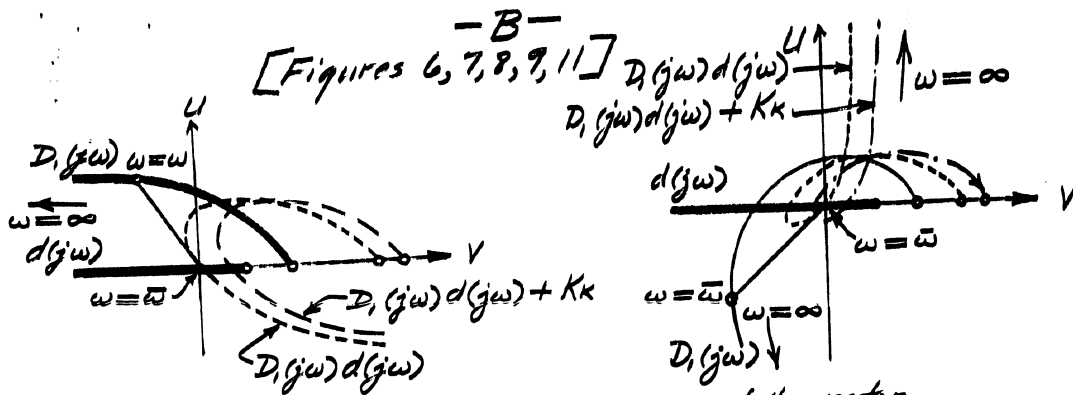 -B-
[Figures 6, 7, 8, 9, 11]
U
D₁(jω) ω=ω
ω=∞
d(jω)
ω=ω̅
V
D₁(jω)d(jω)+Kκ
D₁(jω)d(jω)
U
D₁(jω)d(jω)
D₁(jω)d(jω)+Kκ
ω=∞
d(jω)
V
ω=ω̅
ω=ω̅
ω=∞
D₁(jω)